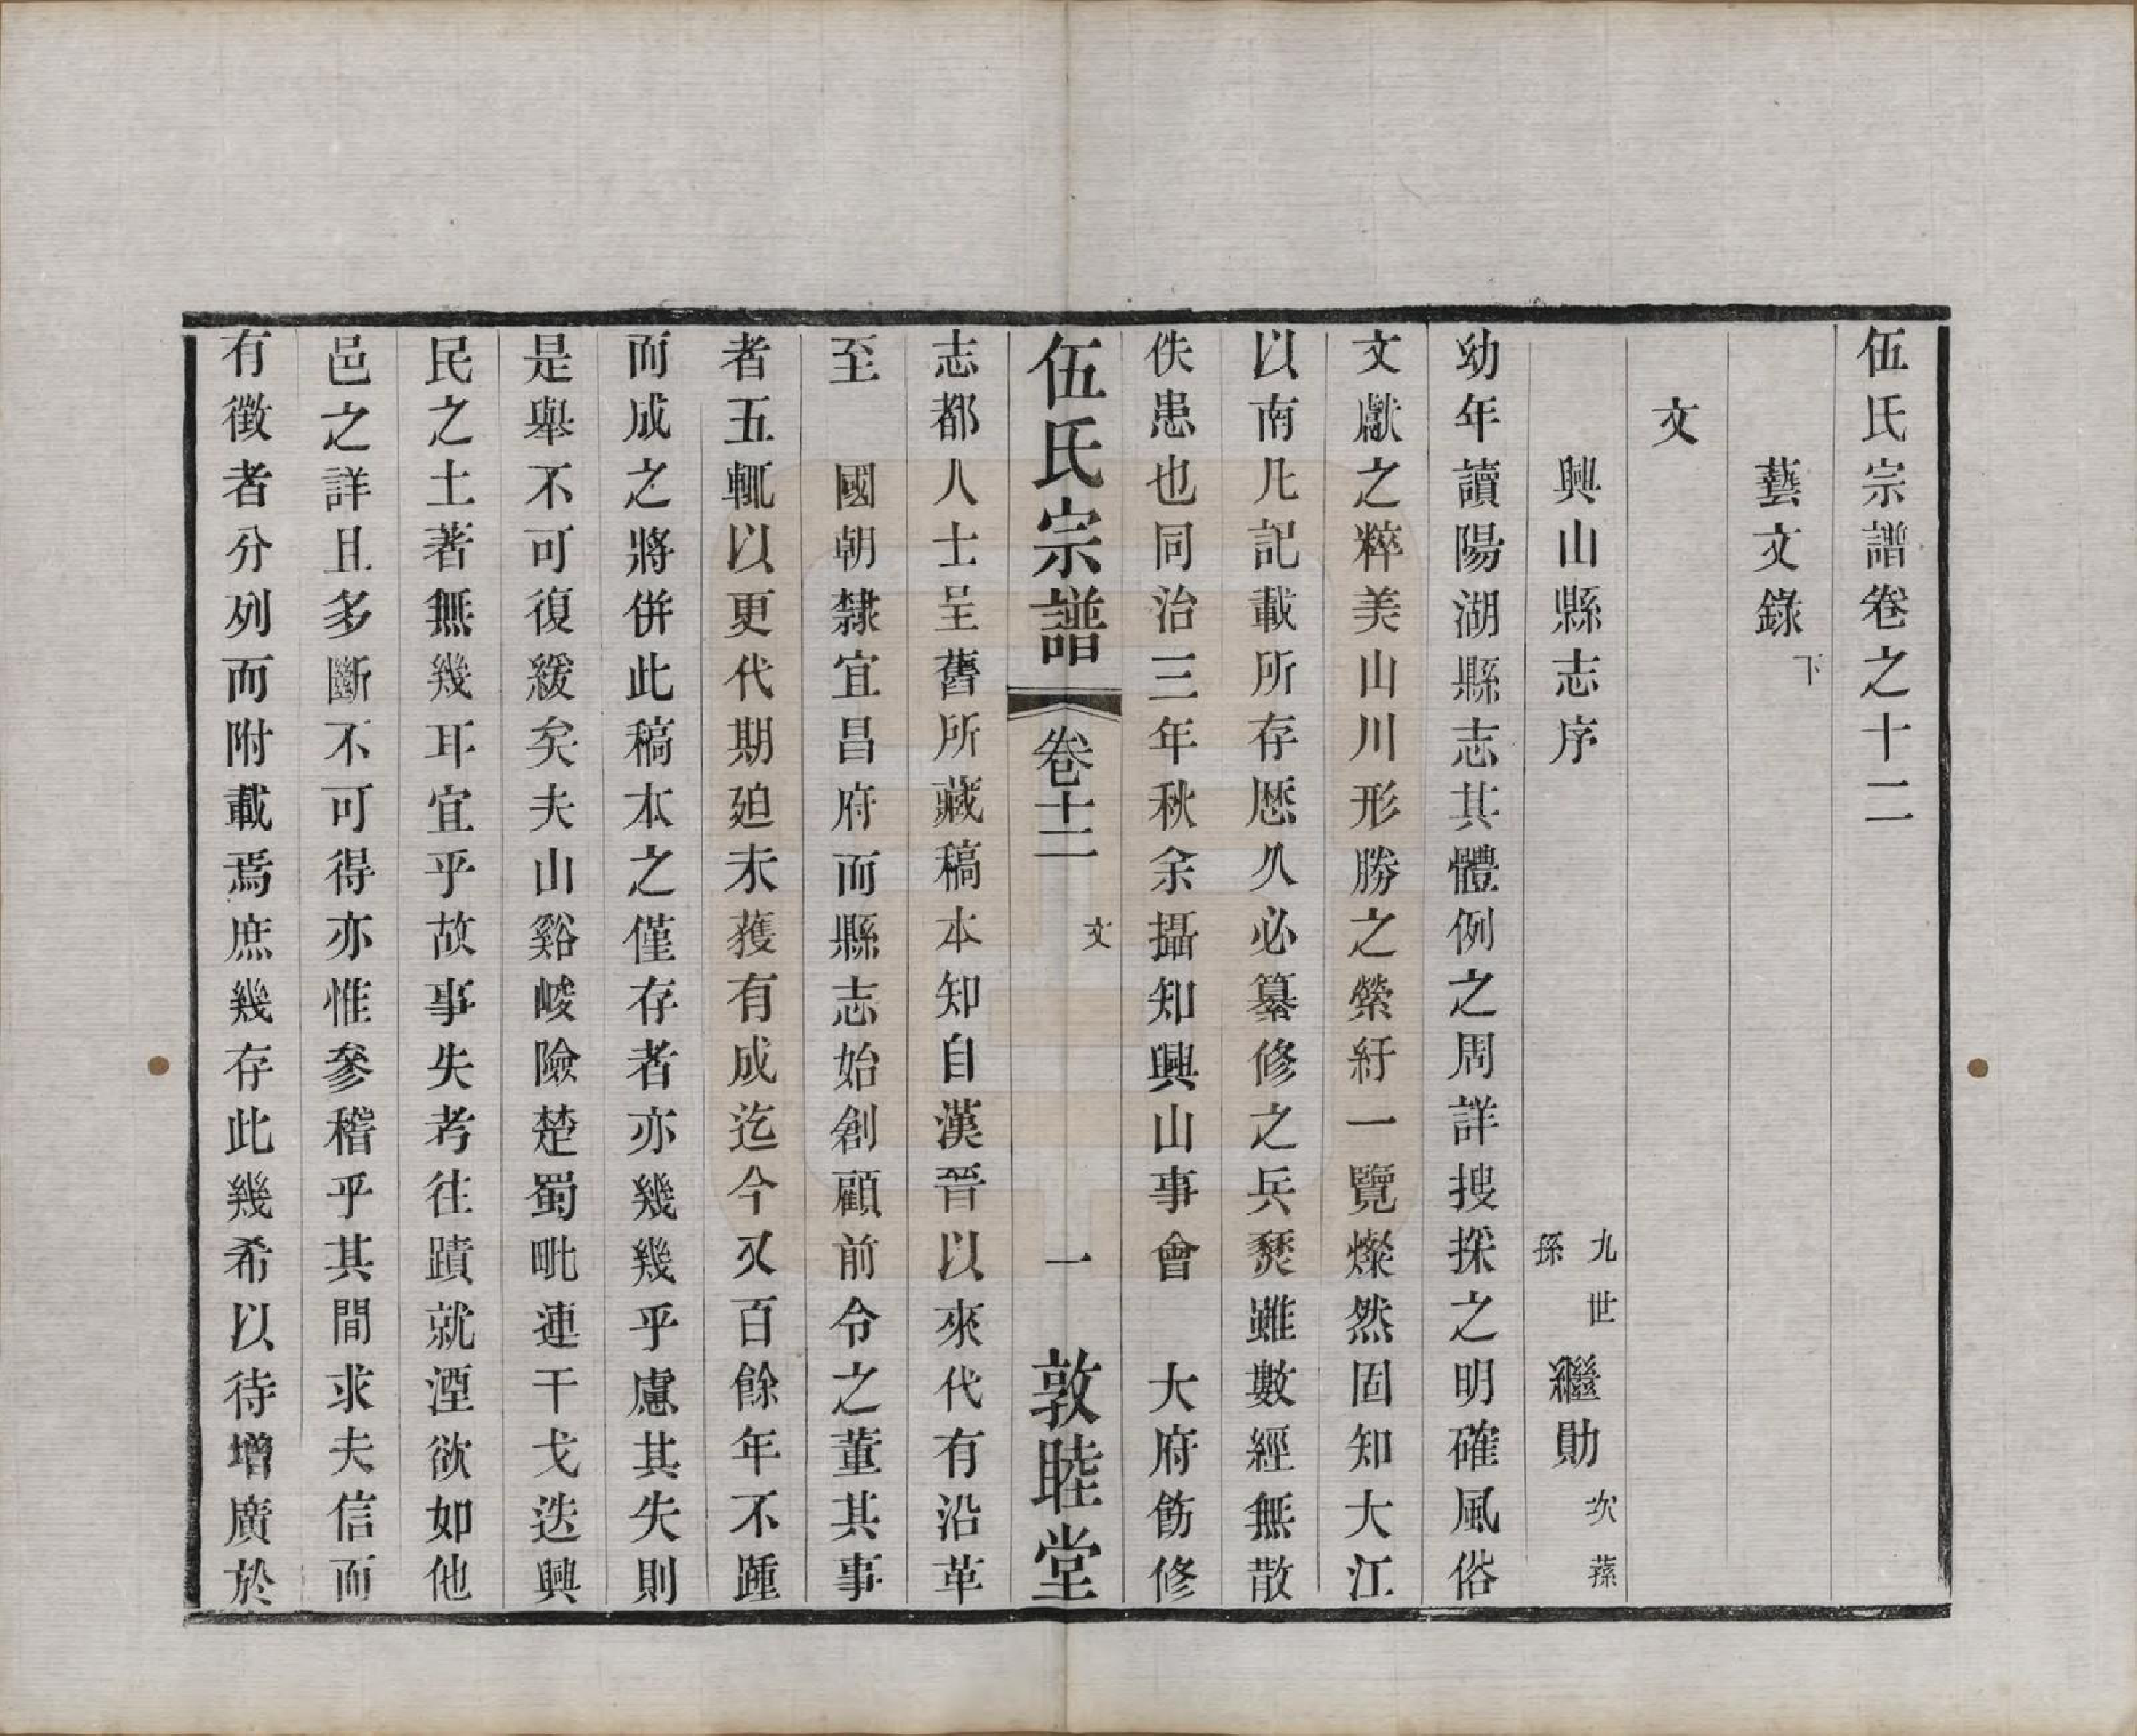 伍氏宗譜卷之十二
藝文錄下
文
興山縣志序 九世孫 繼勛 次蓀
幼年讀陽湖縣志其體例之周詳搜採之明確風俗
文獻之粹美山川形勝之縈紆一覽燦然固知大江
以南凡記載所存歷久必纂修之兵燹雖數經無散
佚患也同治三年秋余攝知興山事會 大府飭修
伍氏宗譜 卷十二 文 一 敦睦堂
志都人士呈舊所藏稿本知自漢晉以來代有沿革
至 國朝隸宜昌府而縣志始創顧前令之董其事
者五輒以更代期廹未獲有成迄今又百餘年不踵
而成之將併此稿本之僅存者亦幾幾乎慮其失則
是舉不可復緩矣夫山谿峻險楚蜀毗連干戈迭興
民之土著無幾耳宜乎故事失考往蹟就湮欲如他
邑之詳且多斷不可得亦惟參稽乎其間求夫信而
有徵者分列而附載焉庶幾存此幾希以待增廣於